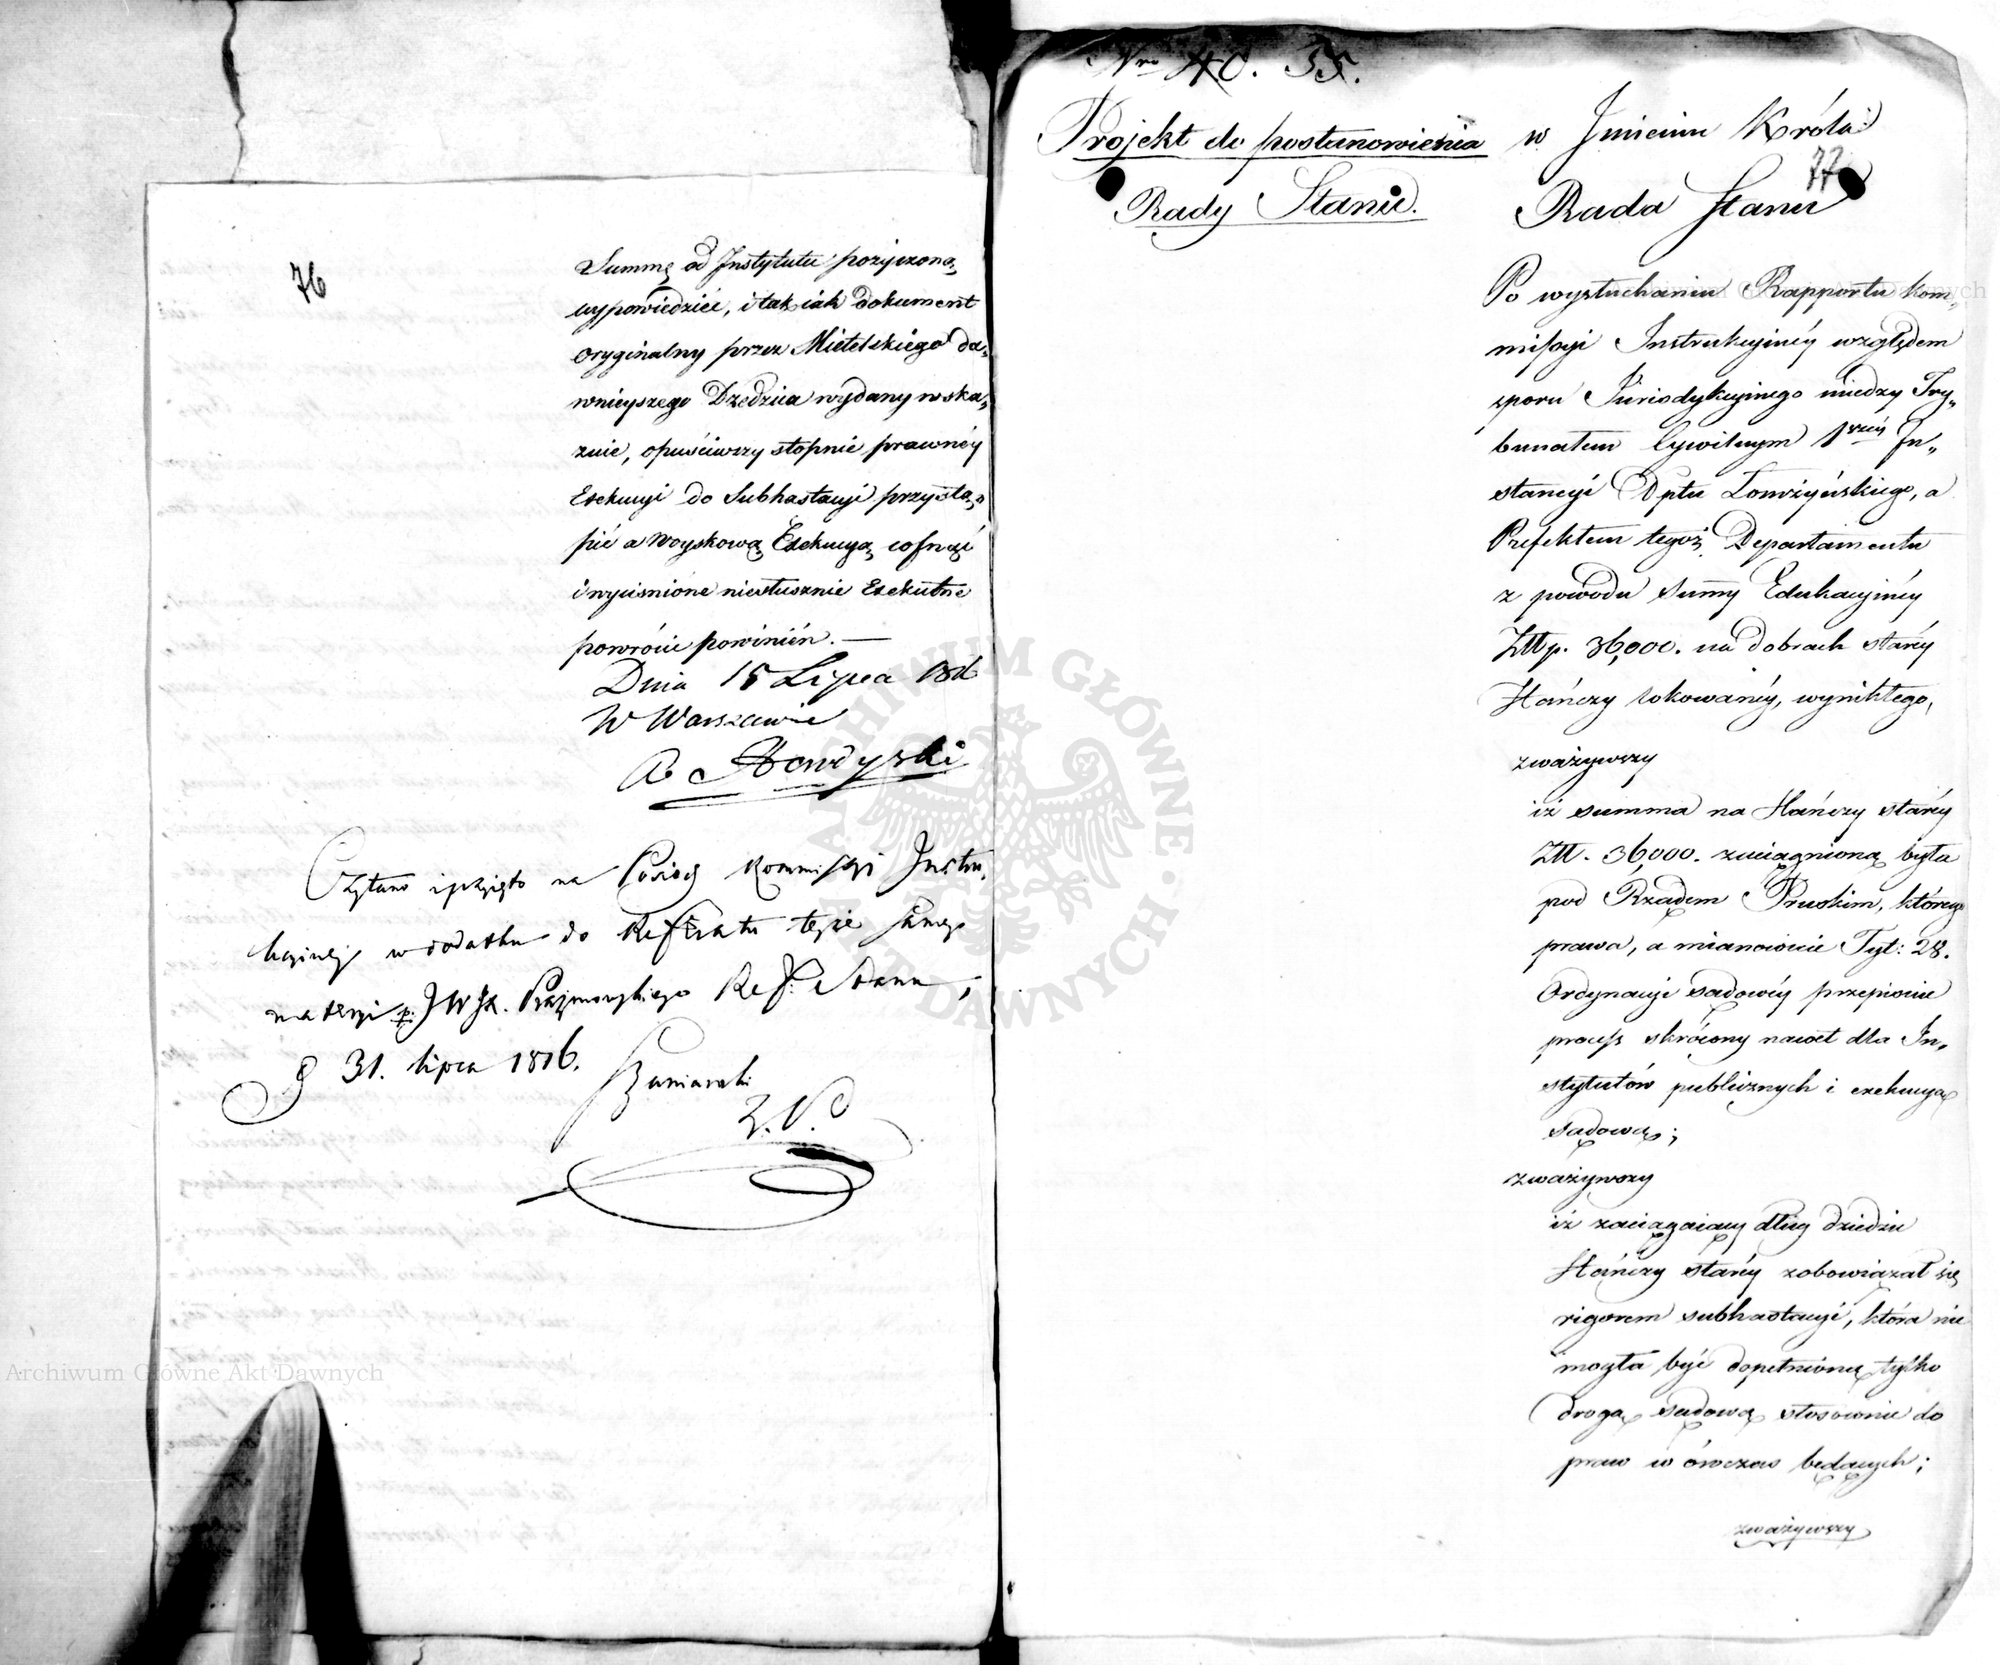 76
Summę od Instytutu pożyczoną
wypowiedzieć, i tak iak dokument
oryginalny przez Mietelskiego da„
wnieyszego Dziedzica wydany wska„
zuie, opuściwszy stopnie prawnéy
Exekucyi do Subhastacyi przystą„
pić a woyskową Exekucyą cofnąć
i wyciśnione niesłusznie Exekutne
powrócić powinién. —
Dnia 15 Lipca
W Warszawie
Czytano i przyjęto na Posiedz. Kommissyi Instru„
kcyinéj w dodatku do Referatu tejże samej
materyi p. JW Ref. Stanu,
d 31. lipca 1816.
Szaniawski
Z.P.
Archiwum Główne Akt Dawnych
Nro 40. 35.
Projekt do postanowienia
Rady Stanu.
w Jmieniu Króla
77
Rada Stanu
Po wysłuchaniu Rapportu Kom„
missyi Instrukcyinéy względem
sporu Jurisdykcyinego między Try„
bunałem Cywilnym 1wszéy In„
stancyi Dptu Łomżyńskiego, a
Prefektem tegoż Departamentu
z powodu Summy Edukacyinéy
Złłp. 36,000. na dobrach staréy
Hańczy lokowanéy, wynikłego,
zważywszy
iż summa na Hańczy staréy
Złł. 36,000. zaciągnioną była
pod Rządem Pruskim, którego
prawa, a mianowicie Tyt: 28.
Ordynacyi sądowéy przepisuie
process skrócony nawet dla In„
stytutów publicznych i exekucyą
sądową;
zważywszy
iż zaciągaiący dług dziedzic
Hańczy staréy zobowiązał się
rigorem subhastacyi, która nie
mogła być dopełnioną tylko
drogą sądową stosownie do
praw w ówczas będących;
zważywszy
Archiwum Główne Akt Dawnych
ARCHIWUM GŁÓWNE AKT DAWNYCH